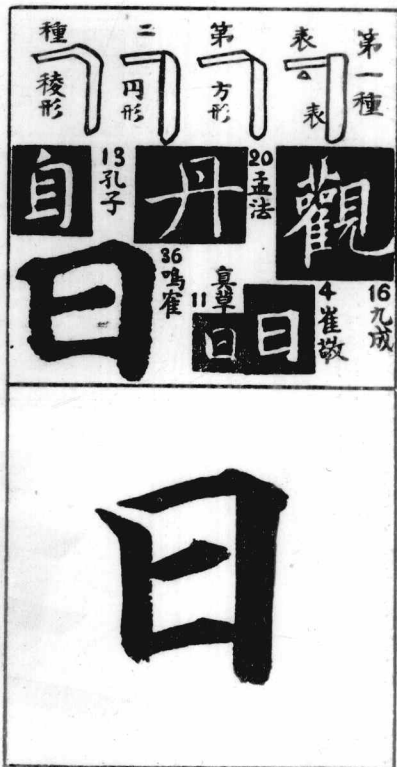 第一種
表
表
第
方形
二
円形
種
稜形
觀
16九成
20孟法
丹
13孔子
自
4崔敬
日
真草
11
日
36鳴雀
日
日